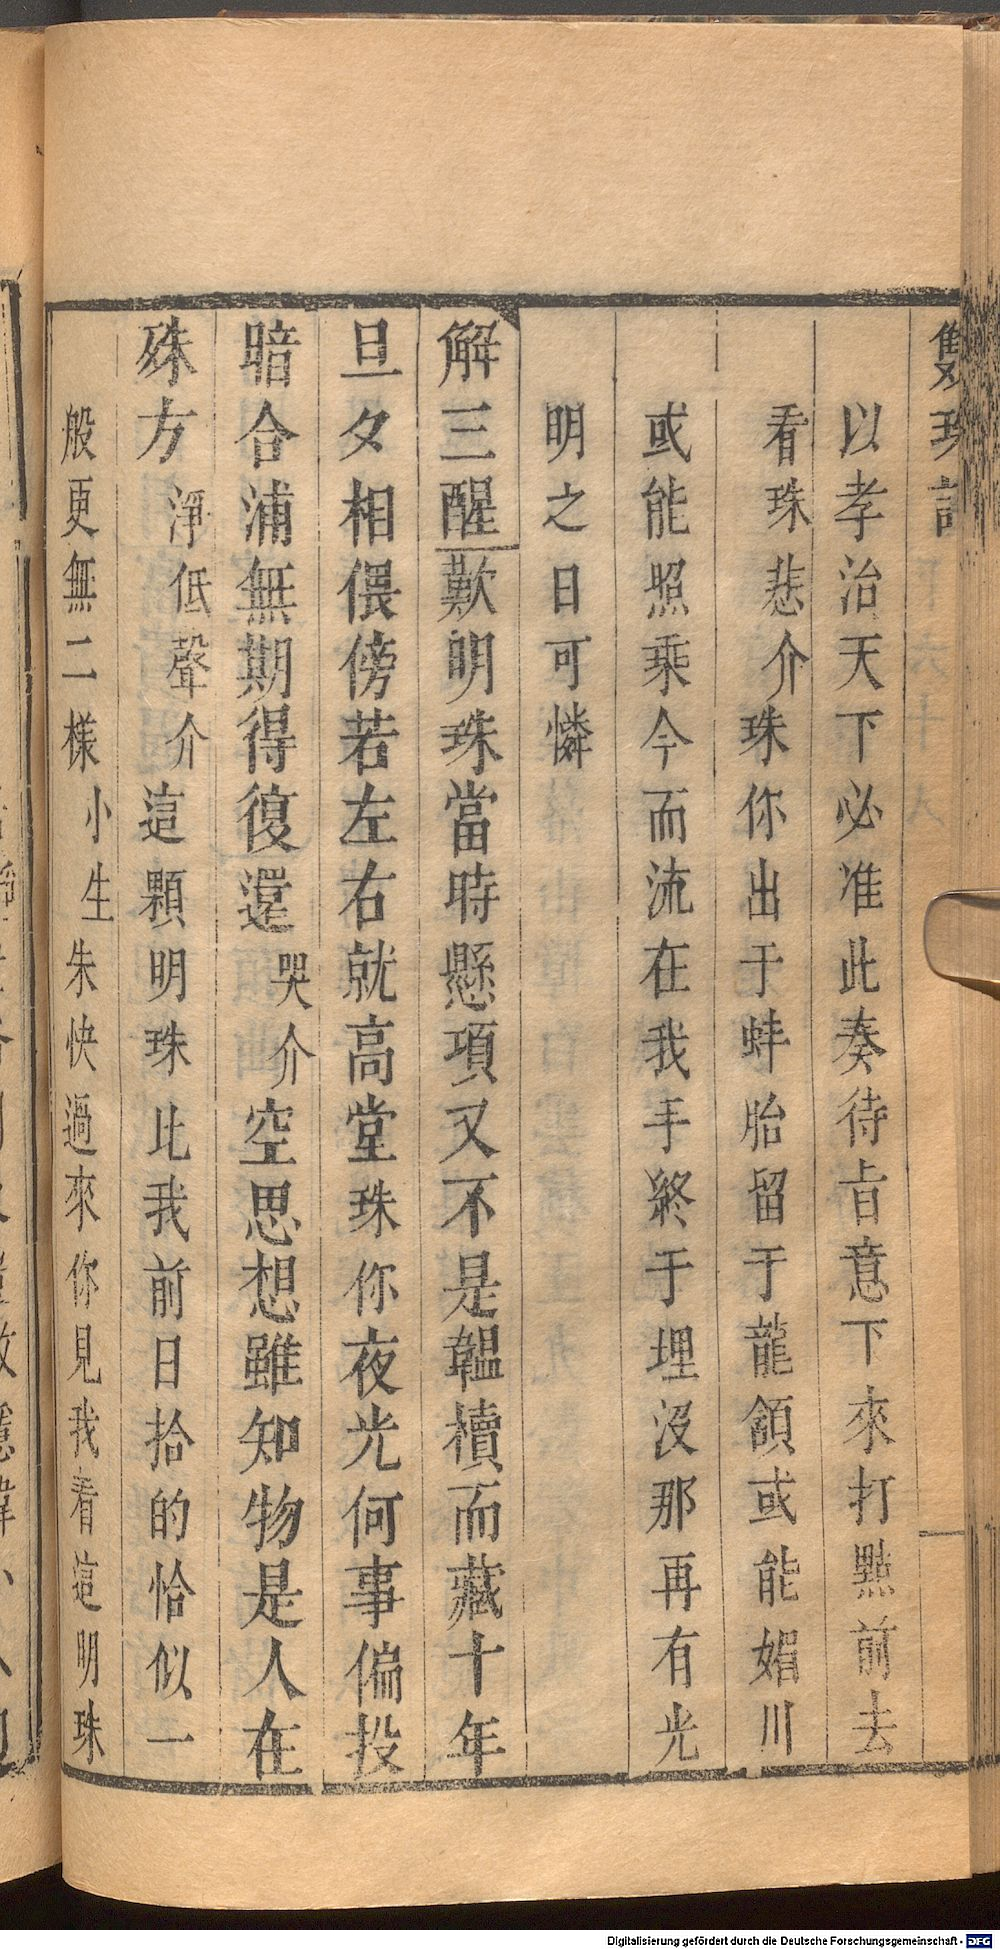 雙珠記
以孝治天下必准此奏待旨意下來打點前去
看珠悲介珠你出于蚌胎留于龍頷或能媚川
或能照乘今而流在我手終于埋沒那再有光
明之日可憐
解三酲歎明珠當時懸項又不是韞櫝而藏十年
旦夕相偎傍若左右就高堂珠你夜光何事偏投
暗合浦無期得復還哭介空思想雖知物是人在
殊方淨低聲介這顆明珠比我前日拾的恰似一
般更無二樣小生朱快過來你見我看這明珠
Digitalisierung gefördert durch die Deutsche Forschungsgemeinschaft - DFG